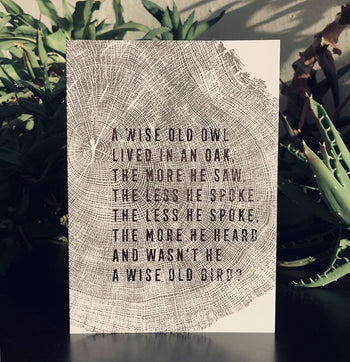 A WISE OLD OWL
LIVED IN AN OAK,
THE MORE HE SAW,
THE LESS HE SPOKE.
THE LESS HE SPOKE,
THE MORE HE HEARD
AND WASN'T HE
A WISE OLD BIRD?